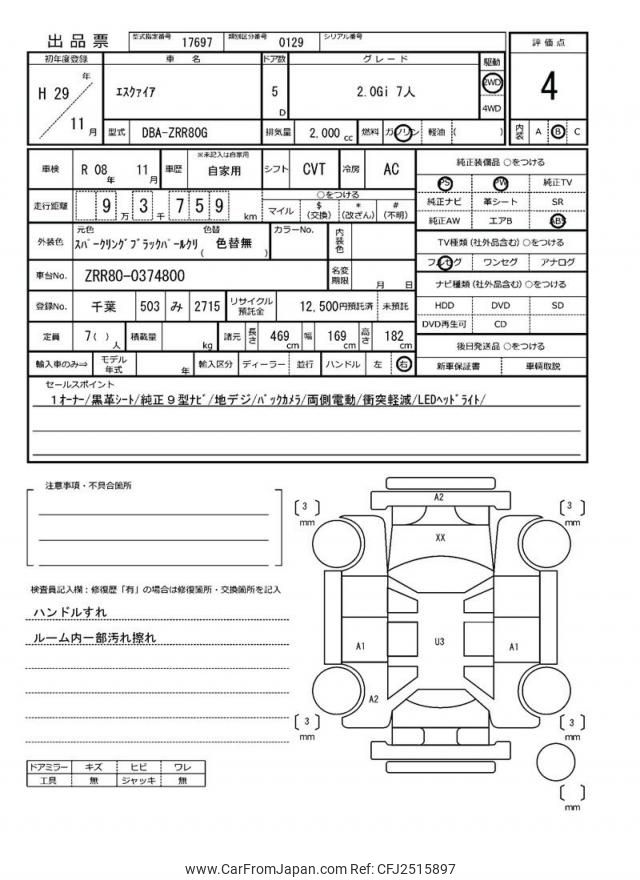 出品票 型式指定番号 17697 類別区分番号 0129 シリアル番号
評価点
4
内装 A B C
初年度登録 車名 ドア数 グレード 駆動
H 29 年 11 月
ｴｽｸｧｲｱ 5 D 2.0Gi 7人 2WD 4WD
型式 DBA-ZRR80G 排気量 2,000 cc 燃料 ガソリン 軽油 ( )
車検 R 08 年 11 月 車歴 ※未記入は自家用 自家用 シフト CVT 冷房 AC
走行距離 9 万 3 千 7 5 9 km
○をつける
マイル $ (交換) * (改ざん) # (不明)
外装色 元色 色替
ｽﾊﾟｰｸﾘﾝｸﾞﾌﾞﾗｯｸﾊﾟｰﾙｸﾘ ( 色替無 )
カラーNo. 内装色
車台No. ZRR80-0374800 名変期限 月 日
登録No. 千葉 503 み 2715 リサイクル預託金 12,500円預託済 未預託
定員 7( ) 人 積載量 kg 諸元 長さ 469 cm 幅 169 cm 高さ 182 cm
輸入車のみ⇒ モデル年式 年 輸入区分 ディーラー 並行 ハンドル 左 右
純正装備品 ○をつける
PS PW 純正TV
純正ナビ 革シート SR
純正AW エアB ABS
TV種類 (社外品含む) ○をつける
フルセグ ワンセグ アナログ
ナビ種類 (社外品含む) ○をつける
HDD DVD SD
DVD再生可 CD
後日発送品 ○をつける
新車保証書 車輌取説
セールスポイント
1ｵｰﾅｰ/黒革ｼｰﾄ/純正９型ﾅﾋﾞ/地デジ/ﾊﾞｯｸｶﾒﾗ/両側電動/衝突軽減/LEDﾍｯﾄﾞﾗｲﾄ/
注意事項・不具合箇所
検査員記入欄：修復歴「有」の場合は修復箇所・交換箇所を記入
ハンドルすれ
ルーム内一部汚れ擦れ
ドアミラー キズ ヒビ ワレ
工具 無 ジャッキ 無
[ 3 ] mm
A2
[ 3 ] mm
XX
A1
U3
A1
A2
[ 3 ] mm
[ 3 ] mm
[ ] mm
www.CarFromJapan.com Ref: CFJ2515897